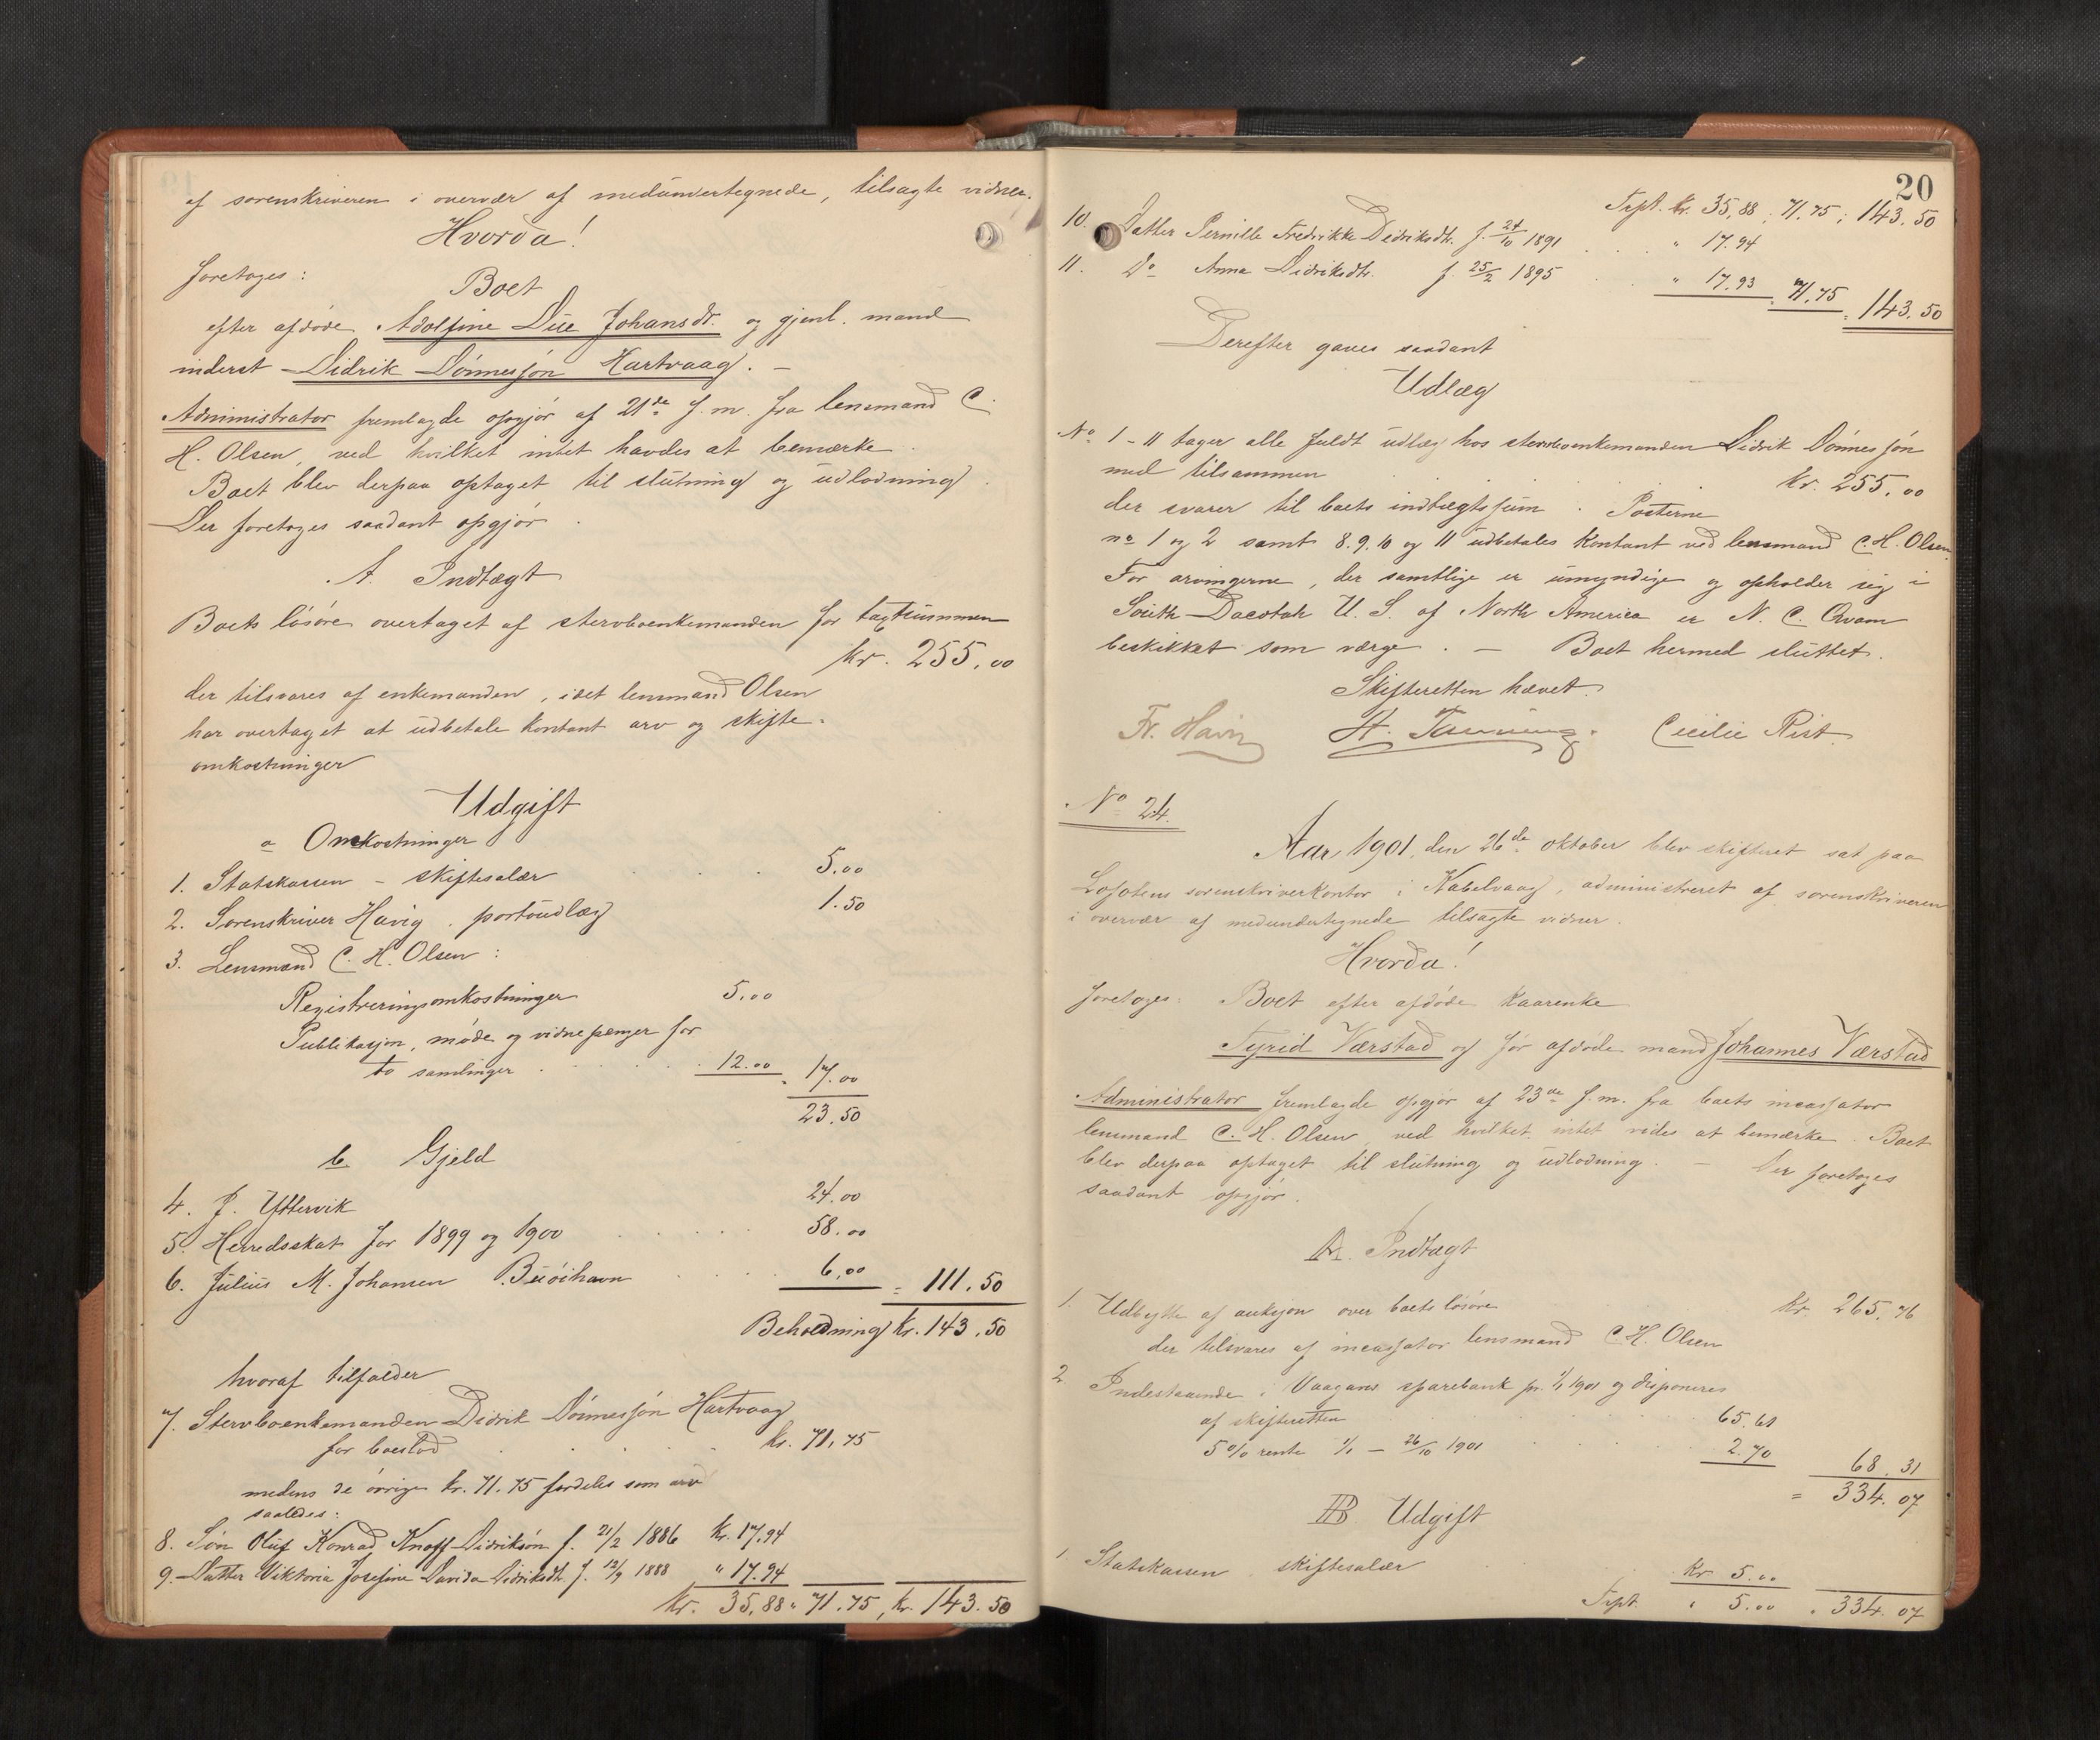 af sorenskriveren i overvær af medunvertegnede, tilsagte vidner.
Hvorda!
foretoges:
Boet
efter afdøde Adolfine Due Johansdt. og gjenl. mand
inderst Didrik Dönnesjön Hartvaag. –
Administrator fremlagde opgjör af 21de f. m. fra lensmand C.
H. Olsen, ved hvilket intet havdes at bemærke.
Boet blev derpaa optaget til slutning og udlodning.
Der foretoges saadant opgjör.
A. Indtægt
Boets lösöre overtaget af stervboenkemanden for taxtsummen
kr. 255,00
der tilsvares af enkemanden, idet lensmand Olsen
har overtaget at udbetale kontant arv og skifte-
omkostninger
Udgift
a Omkostninger
1. Statskassen – skiftesalær . . . 5.00
2. Sorenskriver Havig. portoudlæg 1.50
3. Lensmand C. H. Olsen:
Registreringsomkostninger 5.00
Publikasjon, møde og vidnepenger for
to samlinger . . . . . 12.00 " 17.00
23.50
b Gjeld
4. J. Yttervik 24.00
5. Herredsskat for 1899 og 1900 . . . . 58.00
6. Julius M. Johansen . . . . 6,00 = 111.50
Beholdning kr. 143.50
hvoraf tilfalder
7. Stervboenkemanden Didrik Dönnesjön Hartvaag
for boeslod . . . . kr. 71,75
medens de övrige kr. 71.75 fordeles som arv
saaledes:
8. Sön Oluf Konrad Knoff Didriksön f. 21/2 1886 kr. 17,94
9. Datter Viktoria Josefine Davida Didriksdt. f. 12/9 1888 " 17.94
kr. 35,88 " 71.75, kr. 143.50
20
Trpt. kr. 35,88 : 71.75 : 143.50
10. Datter Pernille Fredrikke Didriksdt. f. 24/10 1891 . . " 17.94
11. Do Anna Didriksdt. f. 25/2 1895 . . " 17.93 " 71.75 = 143.50
Derefter gaves saadant
Udlæg
No 1 – 11 tager alle fuldt udlæg hos stervboenkemanden Didrik Dönnesjön
med tilsammen . . . . kr. 255,00
der svarer til boets indtægtssum. Posterne
no 1 og 2 samt 8. 9. 10 og 11 udbetales kontant ved lensmand C. H. Olsen.
For arvingerne, der samtlige er umyndige og opholder sig i
South Dacotah U. S. of North America er N. C. Qvam
beskikket som værge. – Boet hermed sluttet.
Skifteretten hævet.
Fr. Havig H. Tønning. Cecilie Rist
No 24.
Aar 1901, den 26de oktober blev skifteret sat paa
Lofotens sorenskriverkontor i Kabelvaag, administreret af sorenskriveren
i overvær af medundertegnede tilsagte vidner.
Hvorda!
foretoges: Boet efter afdöde kaarenke
Tyrid Værstad og før afdøde mand Johannes Værstad
Administrator fremlagde opgjör af 23de f. m. fra boets incassator
lensmand C. H. Olsen, ved hvilket intet vides at bemærke. Boet
blev derpaa optaget til slutning og udlodning. – Der foretoges
saadant opgjör.
A. Indtægt
1. Udbytte af auksjon over boets lösöre kr. 265,76
der tilsvares af incassator lensmand C. H. Olsen
2. Indestaaende i Vaagans sparebank pr. 1/1 1901 og disponeres
af skifteretten . . . . 65.61
5 % rente 1/1 – 26/10 1901 . . . . 2.70 68.31
= 334.07
B Udgift
1. Statskassen skiftesalær . . kr 5.00
Trpt. " 5.00 " 334.07